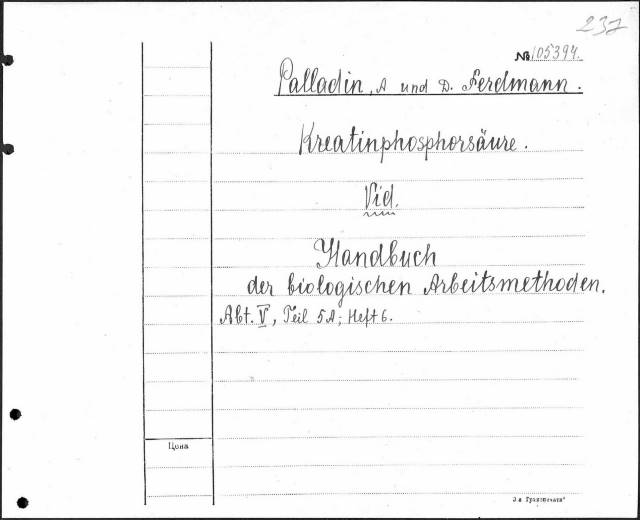 237
№ 105394.
Palladin, A und D. Ferdmann.
Kreatinphosphorsäure.
Vid.
Handbuch
der biologischen Arbeitsmethoden.
Abt. V, Teil 5A; Heft 6.
Цена